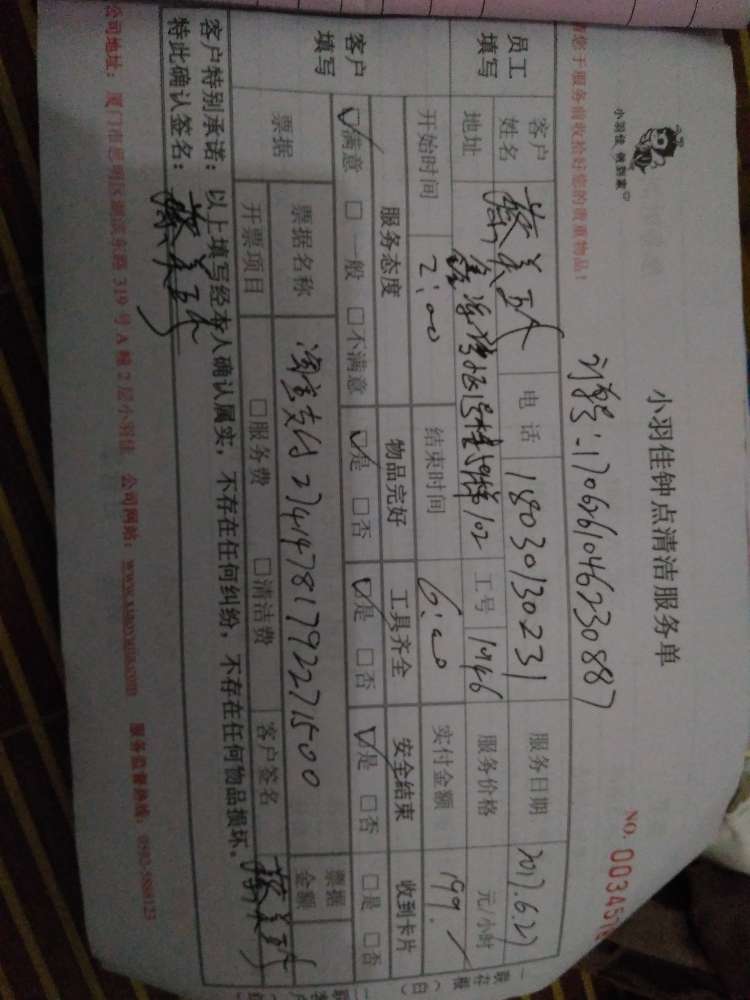 小羽佳 做到家
小羽佳钟点清洁服务单
NO. 003451
订单号:1706261046230887
您于服务前收拾好您的贵重物品!
员工填写
客户姓名 蔡美 电话 18030130231 服务日期 2017.6.27
地址 102 工号 1946 服务价格 元/小时
开始时间 2:00 结束时间 6:00 实付金额 199.
客户填写
服务态度 物品完好 工具齐全 安全结束 收到卡片
☑满意 □一般 □不满意 ☑是 □否 ☑是 □否 ☑是 □否 □是 □否
票据 票据名称 淘宝支付 27414781792271500 票据金额
开票项目 □服务费 □清洁费 客户签名 蔡美
客户特别承诺:以上填写经本人确认属实,不存在任何纠纷,不存在任何物品损坏。
特此确认签名: 蔡美
公司地址:厦门市思明区湖滨东路 319 号 A 幢 2 层小羽佳 公司网站:www.xiaoyujia.com 服务监督热线:0592-5888123